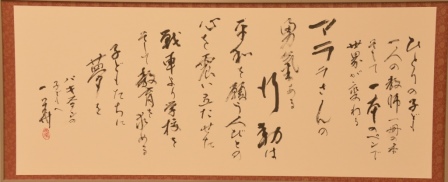 ひとりの子ども
一人の教師 一冊の本
そして 一本のペンで
世界が変わる
マララさんの
勇気ある
行動は
平和を願う人びとの
心を震い立たせた
戦車より学校を
そして教育を求める
子どもたちに
夢を
パキスタンの
子どもへ